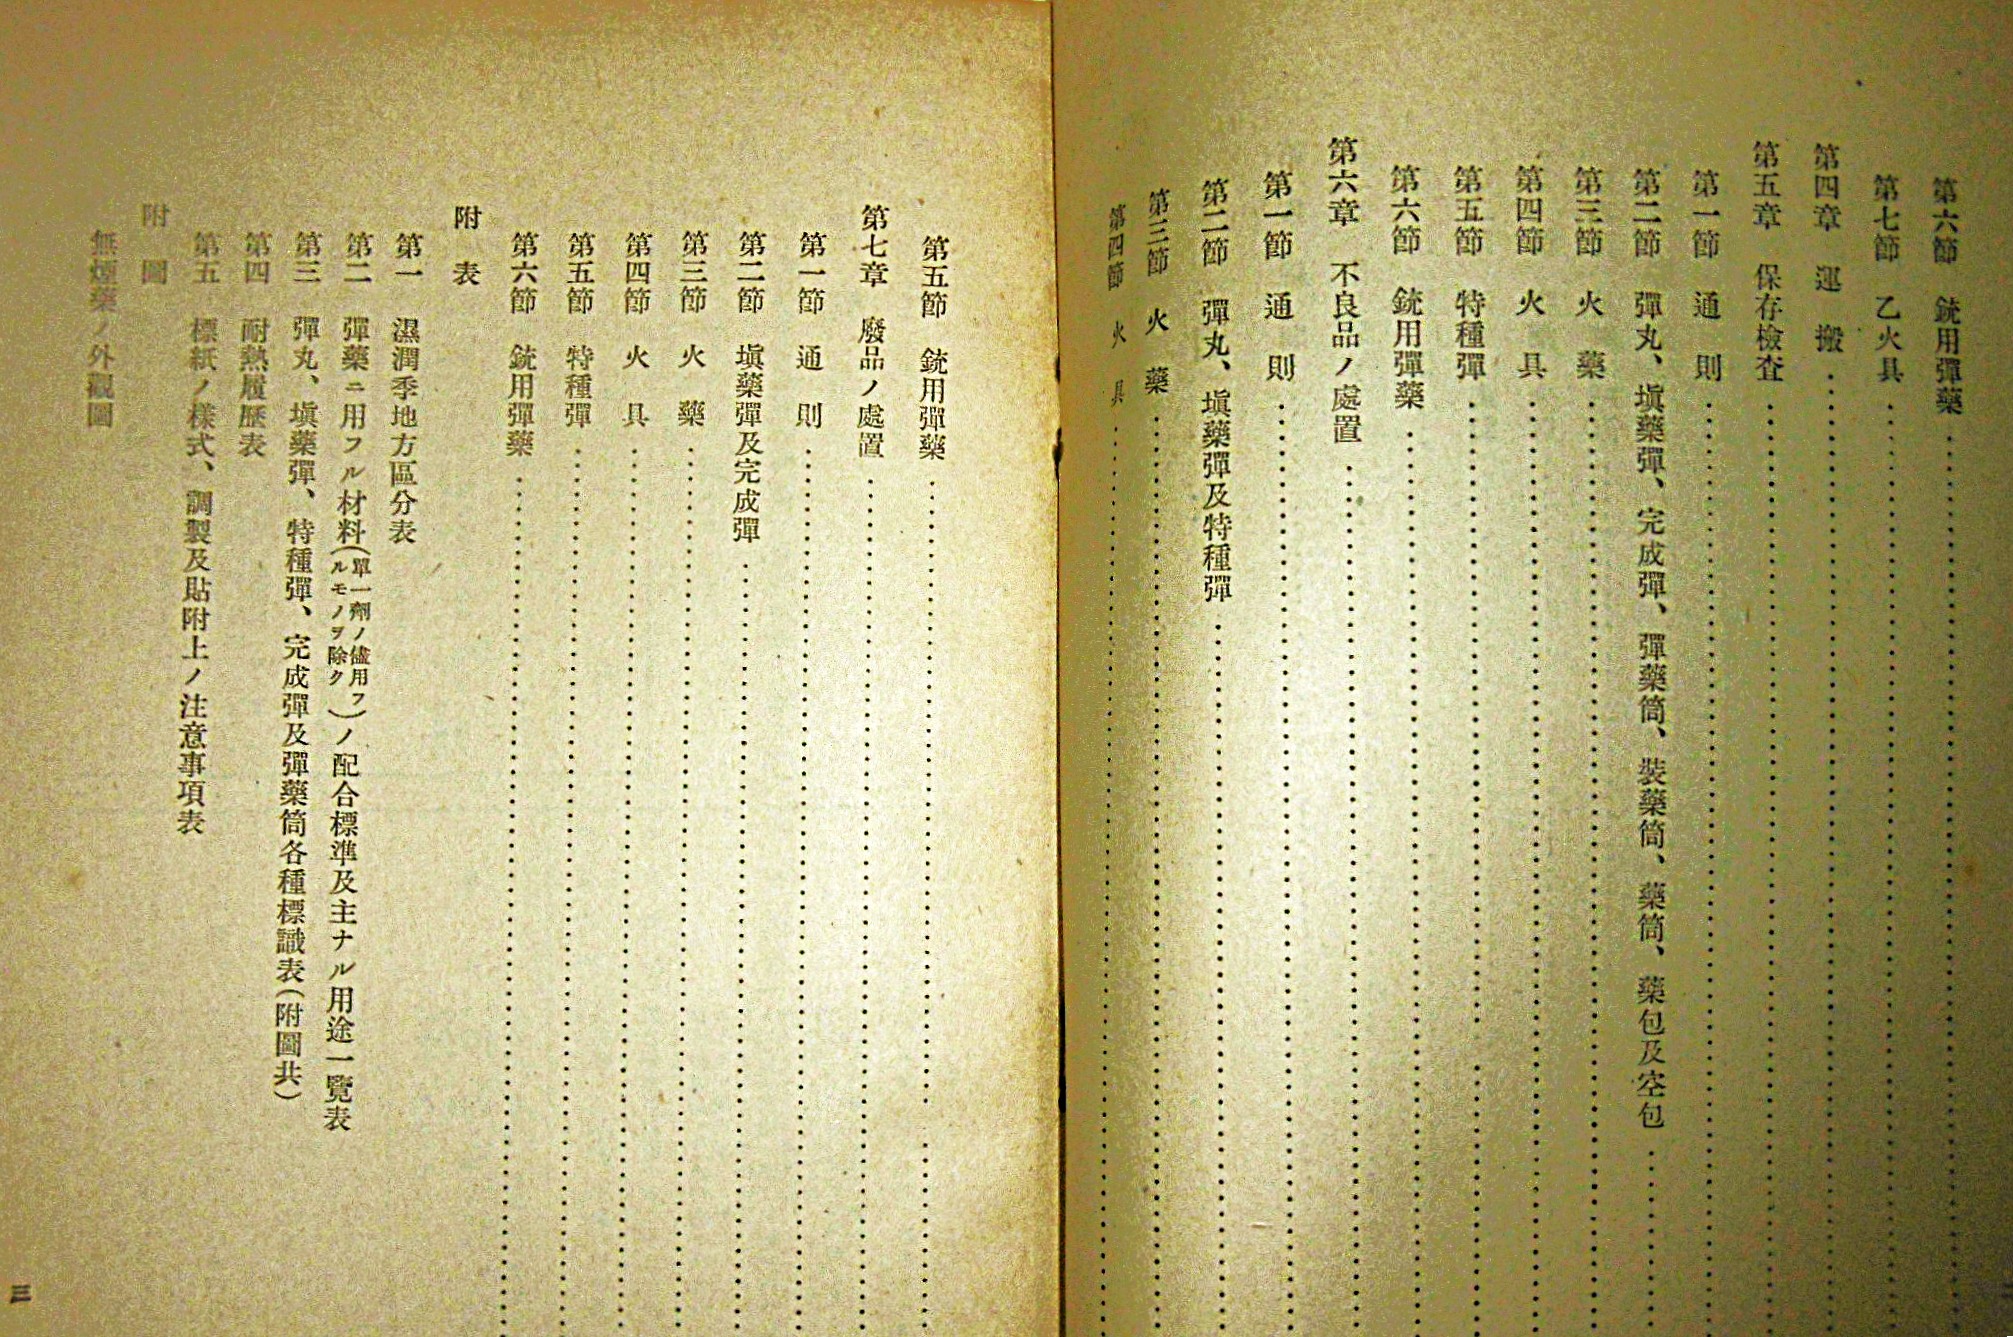 第六節　銃用彈藥
第七節　乙火具
第四章　運搬
第五章　保存檢査
第一節　通則
第二節　彈丸、塡藥彈、完成彈、彈藥筒、裝藥筒、藥筒、藥包及空包
第三節　火藥
第四節　火具
第五節　特種彈
第六節　銃用彈藥
第六章　不良品ノ處置
第一節　通則
第二節　彈丸、塡藥彈及特種彈
第三節　火藥
第四節　火具
第五節　銃用彈藥
第七章　廢品ノ處置
第一節　通則
第二節　塡藥彈及完成彈
第三節　火藥
第四節　火具
第五節　特種彈
第六節　銃用彈藥
附表
第一　濕潤季地方區分表
第二　彈藥ニ用フル材料(單一劑ノ儘用フルモノヲ除ク)ノ配合標準及主ナル用途一覽表
第三　彈丸、塡藥彈、特種彈、完成彈及彈藥筒各種標識表(附圖共)
第四　耐熱履歷表
第五　標紙ノ樣式、調製及貼附上ノ注意事項表
附圖
無煙藥ノ外觀圖
三